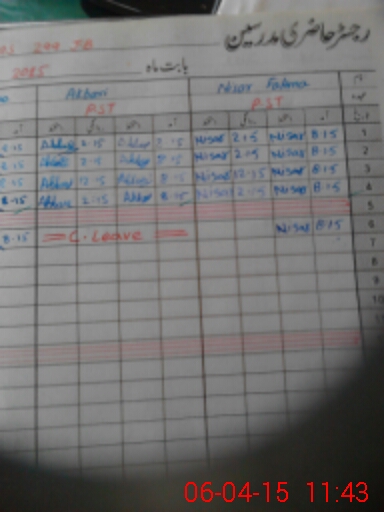 رجسٹر حاضری مدرسین
299 JB
2015 بابت ماہ
Akbari Nisar Fatima
PST PST
8.15 Akbari 2.15 Akbari 8.15 Nisar 2.15 Nisar 8.15 1
8.15 Akbari 2.15 Akbari 8.15 Nisar 2.15 Nisar 8.15 2
8.15 Akbari 12.15 Akbari 8.15 Nisar 12.15 Nisar 8.15 3
8.15 Akbari 2.15 Akbari 8.15 Nisar 2.15 Nisar 8.15 4
5
8.15 C. Leave Nisar 8.15 6
7
8
9
10
11
06-04-15 11:43